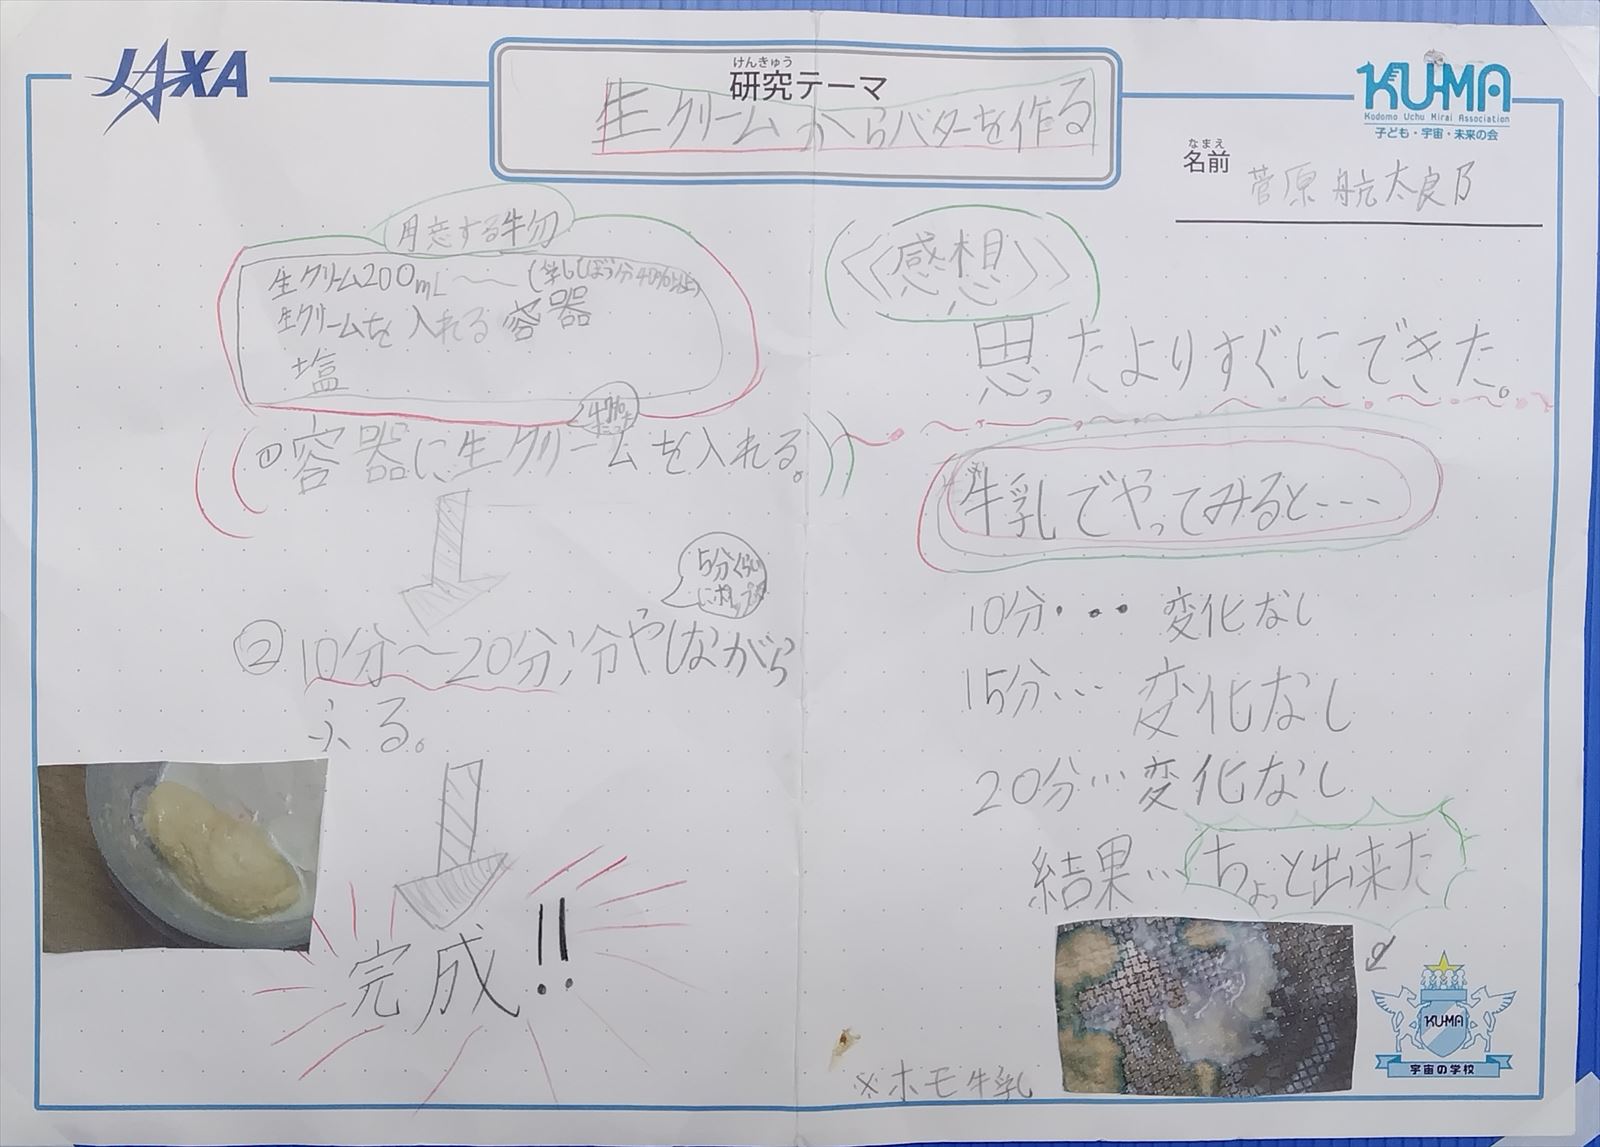 JAXA
けんきゅう
研究テーマ
生クリームからバターを作る
KU-MA
Kodomo Uchu Mirai Association
子ども・宇宙・未来の会
なまえ
名前
菅原航太良乃
用意する物
生クリーム200mL〜〜(乳しぼう分40%以上)
生クリームを入れる容器
塩
47%
①容器に生クリームを入れる。
5分くらい
②10分〜20分冷やしながら
ふる。
完成!!
《感想》
思ったよりすぐにできた。
牛乳でやってみると---
10分・・・変化なし
15分…変化なし
20分…変化なし
結果…ちょっと出来た
※ホモ牛乳
KU-MA
宇宙の学校